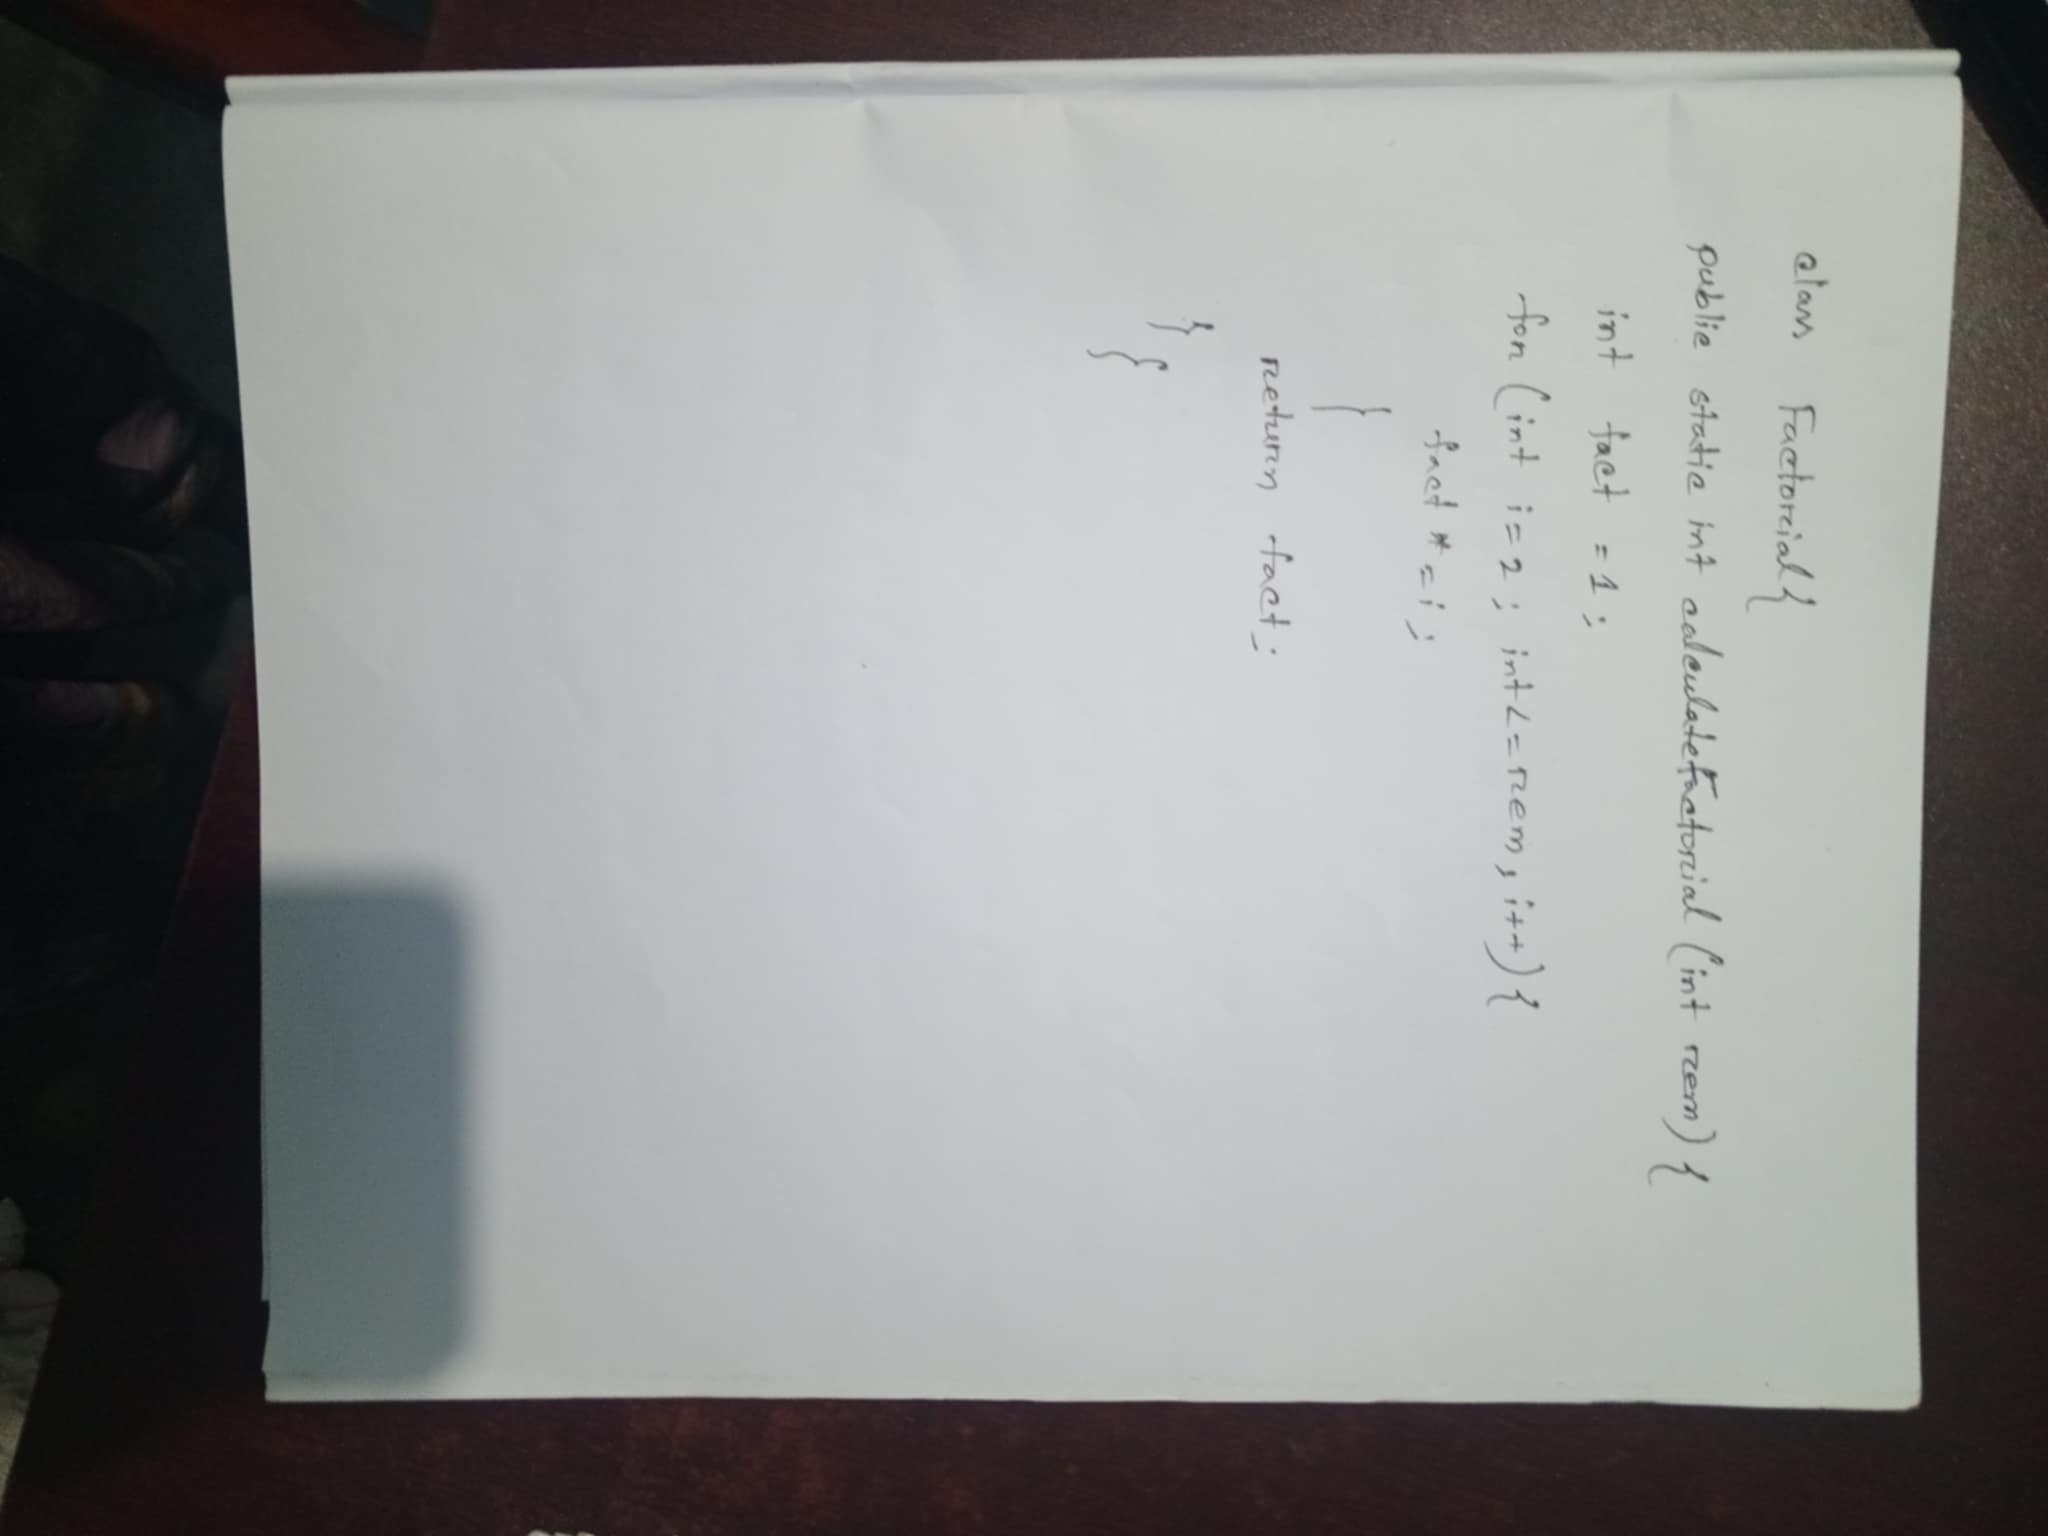 class Factorial{
public static int calculateFactorial (int rem) {
int fact = 1;
for (int i=2; int<=rem, i++) {
fact *=i;
}
return fact;
}
}